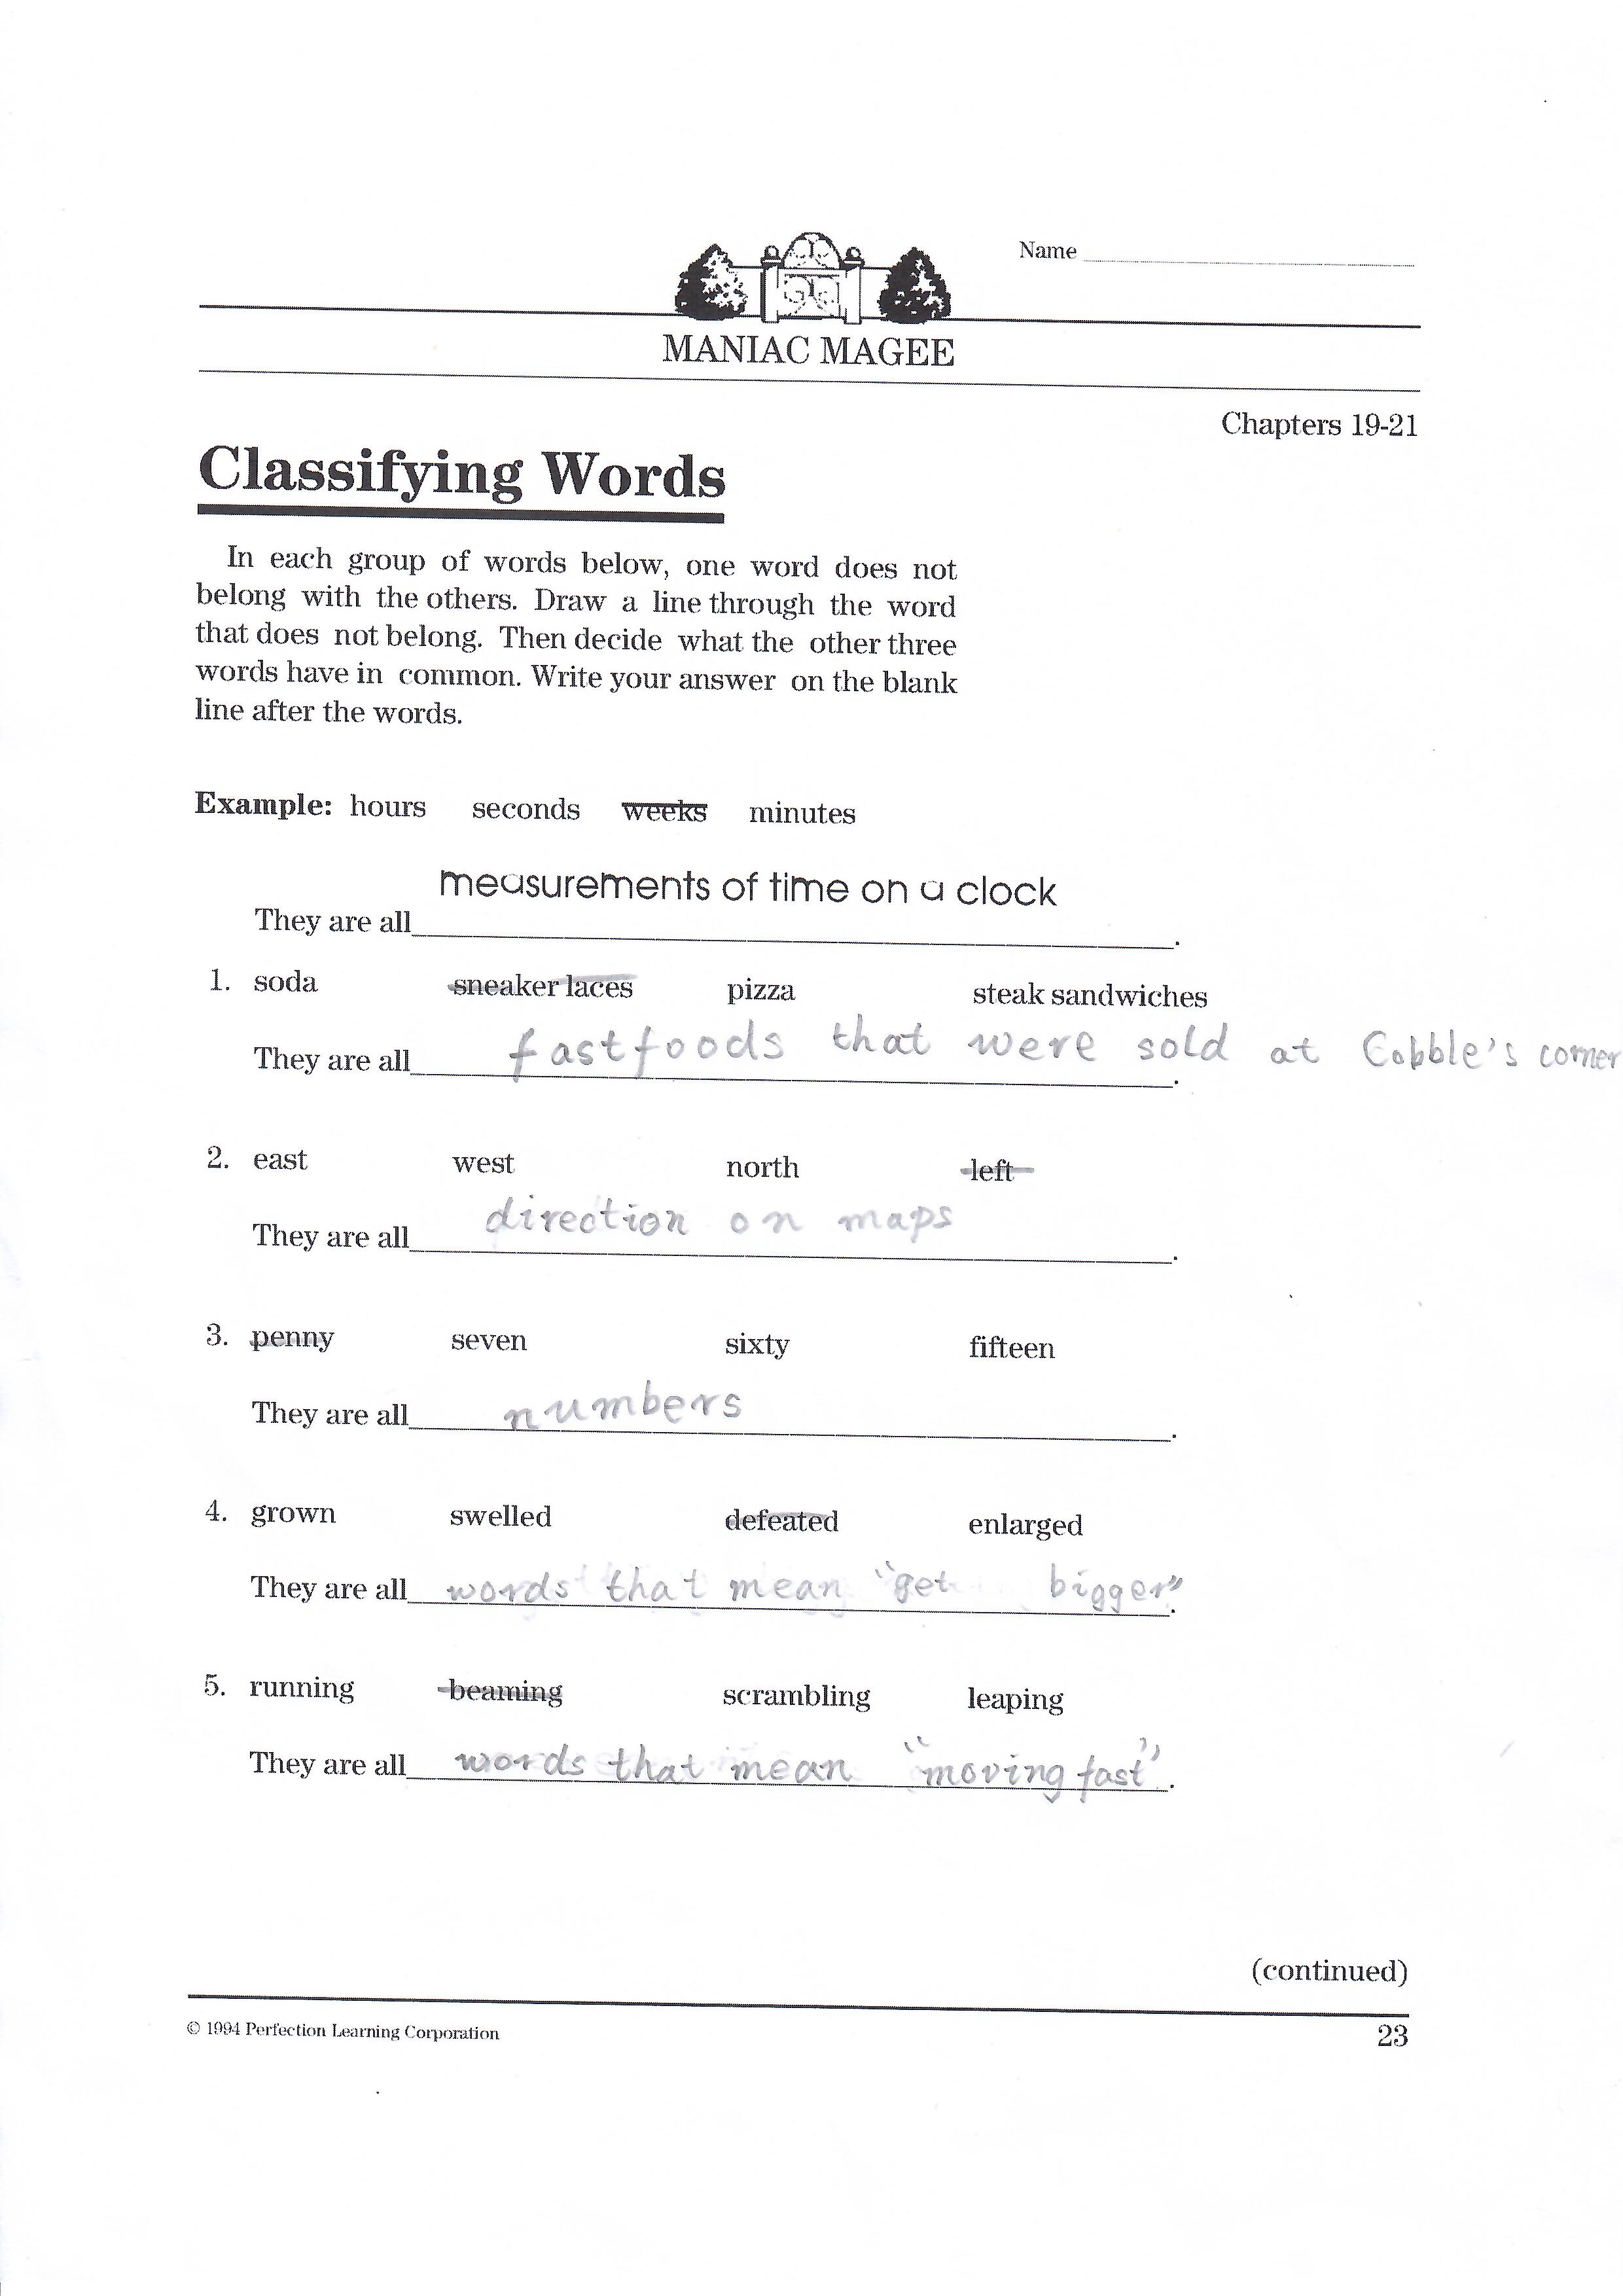 Name
MANIAC MAGEE
Chapters 19-21
Classifying Words
In each group of words below, one word does not
belong with the others. Draw a line through the word
that does not belong. Then decide what the other three
words have in common. Write your answer on the blank
line after the words.
Example: hours seconds weeks minutes
measurements of time on a clock
They are all .
1. soda sneaker laces pizza steak sandwiches
They are all fastfoods that were sold at Cobble's corner.
2. east west north left
They are all direction on maps.
3. penny seven sixty fifteen
They are all numbers.
4. grown swelled defeated enlarged
They are all words that mean "get bigger".
5. running beaming scrambling leaping
They are all words that mean "moving fast".
(continued)
© 1994 Perfection Learning Corporation
23